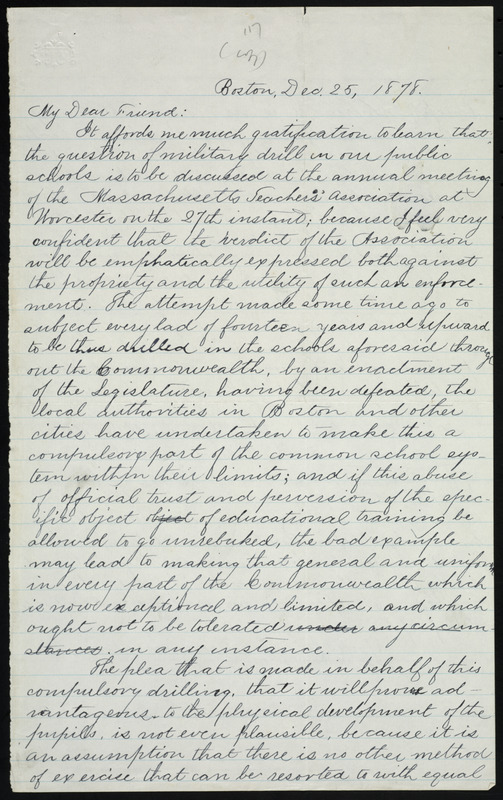 (Copy)
Boston, Dec. 25, 1878.
My Dear Friend:
It affords me much gratification to learn that
the question of military drill in our public
schools is to be discussed at the annual meeting
of the Massachusetts Teachers' Association at
Worcester on the 27th instant; because I feel very
confident that the verdict of the Association
will be emphatically expressed both against
the propriety and the utility of such an enforce-
ment. The attempt made some time ago to
subject every lad of fourteen years and upward
to be thus drilled in the schools aforesaid through
out the Commonwealth, by an enactment
of the Legislature, having been defeated, the
local authorities in Boston and other
cities have undertaken to make this a
compulsory part of the common school sys-
tem within their limits; and if this abuse
of official trust and perversion of the spec-
ific object object of educational training be
allowed to go unrebuked, the bad example
may lead to making that general and uniform
in every part of the Commonwealth which
is now exceptional and limited, and which
ought not to be tolerated under any circum-
stances. in any instance.
The plea that is made in behalf of this
compulsory drilling, that it will prove ad-
vantageous to the physical development of the
pupils, is not even plausible, because it is
an assumption that there is no other method
of exercise that can be resorted to with equal